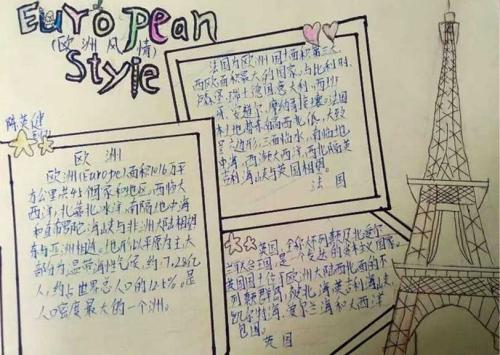 European
(欧洲风情)
Style
陈英健
欧 洲
欧洲(Europe)面积1016万平
方公里共45个国家和地区,西临大
西洋,北靠北冰洋,南隔地中海
和直布罗陀海峡与非洲大陆相望
东与亚洲相连。地形以平原为主大
部分为温带海洋气候,约7.28亿
人,约占世界总人口的12.5%,是
人口密度最大的一个洲。
法国为欧洲国土面积第三大
西欧面积最大的国家,与比利时、
卢森堡、瑞士、德国、意大利、西班
牙、安道尔、摩纳哥接壤。法国
本土地势东高西低,大致
呈六边形,三面临水,南临地
中海,西濒大西洋,西北隔英
吉利海峡与英国相望。
法 国
英国,全称大不列颠及北爱尔
兰联合王国,是一个发达的资本主义国家。
英国国土位于欧洲大陆西北面的不
列颠群岛,被北海、英吉利海峡、
凯尔特海、爱尔兰海和大西洋
包围。
英国